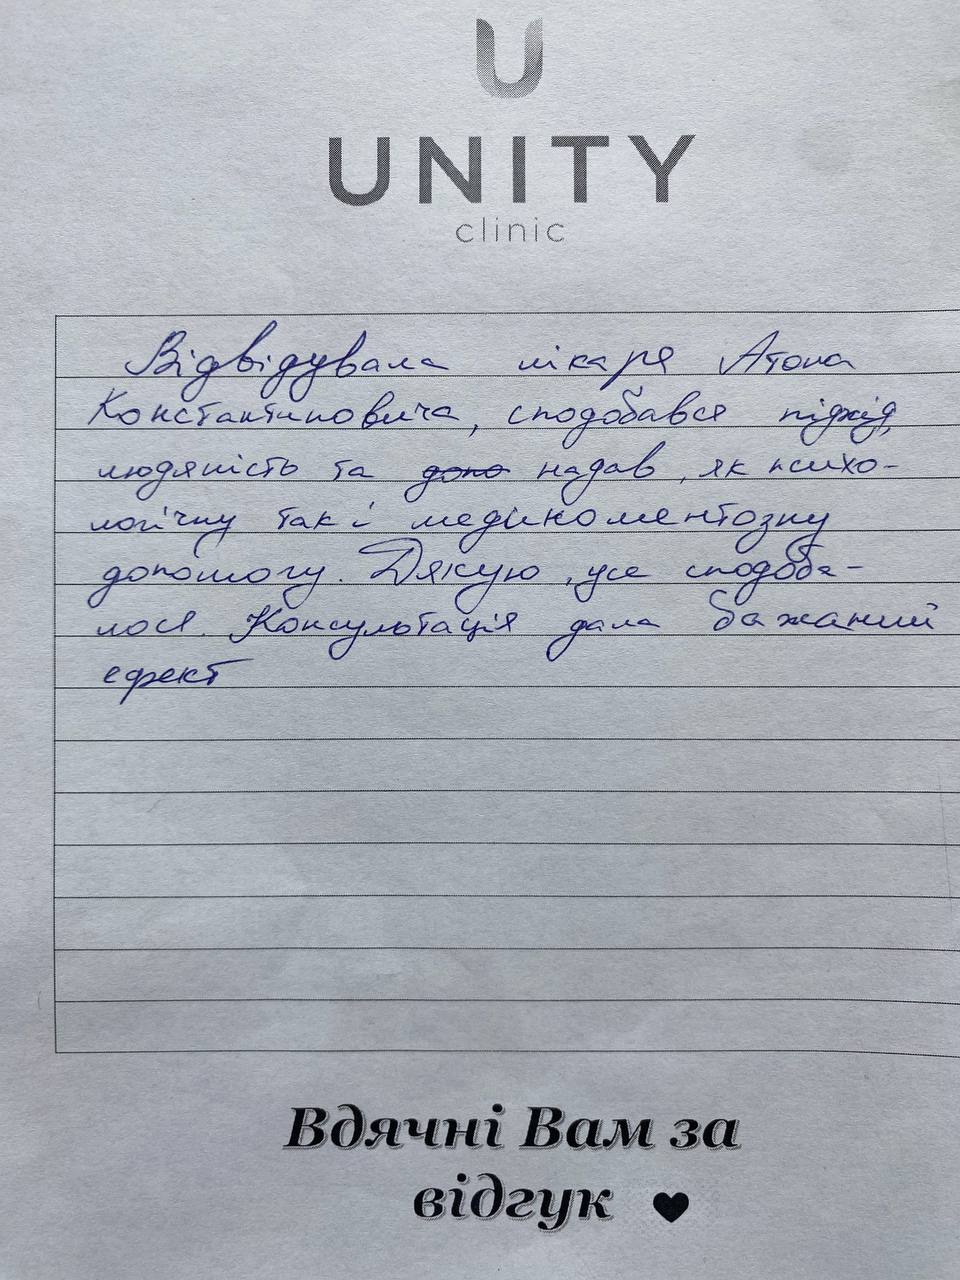 U
UNITY
clinic
Відвідувала лікаря Атона
Константиновича, сподобався підхід,
людяність та допо надав, як психо-
логічну так і медикоментозну
допомогу. Дякую, усе сподоба-
лося. Консультація дала бажаний
ефект
Вдячні Вам за
відгук ♥